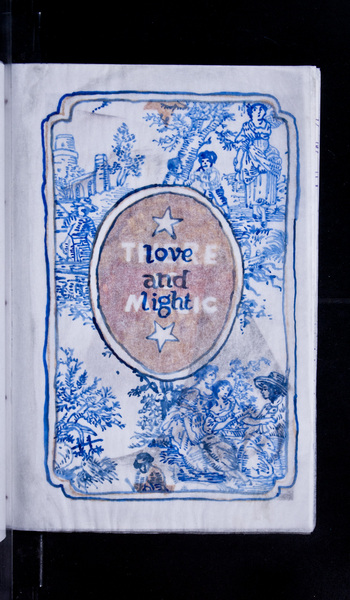 love
and
light